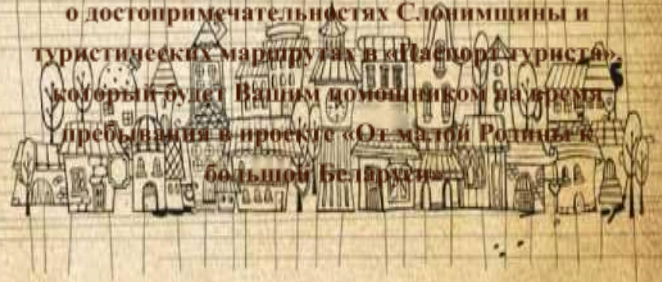 о достопримечательностях Слонимщины и
туристических маршрутах в «Паспорт туриста»,
который будет Вашим помощником на время
пребывания в проекте «От малой Родины к
большой Беларуси»